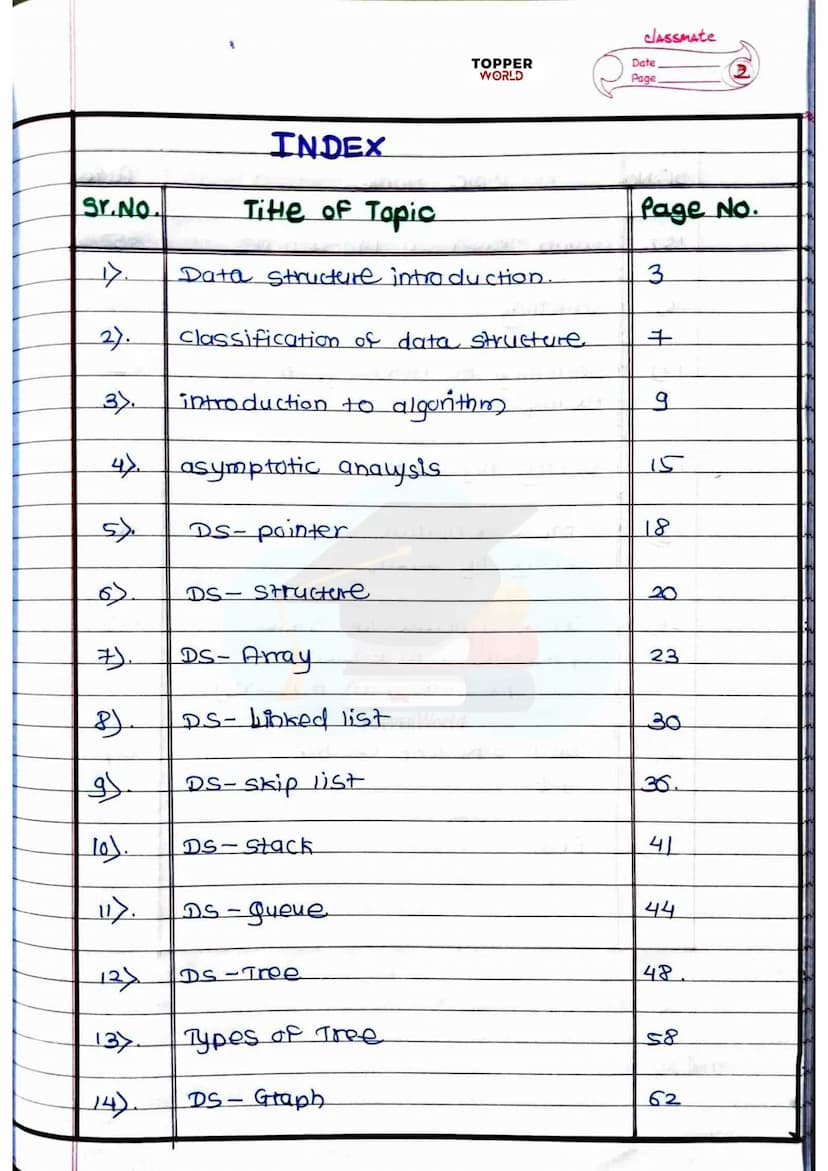 classmate
TOPPER
WORLD
Date
Page
2
INDEX
Sr.No. Title of Topic Page No.
1). Data structure introduction. 3
2). classification of data structure 7
3). introduction to algorithm 9
4). asymptotic analysis 15
5). DS - pointer 18
6). DS - structure 20
7). DS - Array 23
8). DS - Linked list 30
9). DS - skip list 36.
10). DS - stack 41
11). DS - queue 44
12). DS - Tree 48.
13). Types of Tree 58
14). DS - Graph 62